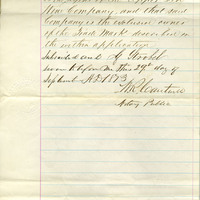 Wine Company, and that said
Company is the exclusive owner
of the Trade Mark described in
the within application.
Subscribed and G Groebel
sworn to before me this 29th day of
Septembr AD 1873
Notary Public